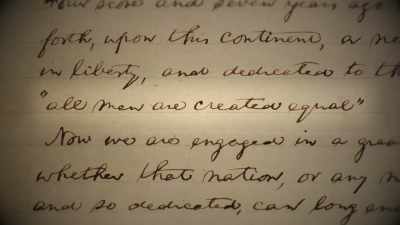 Four score and seven years ago
forth, upon this continent, a ne
in liberty, and dedicated to th
"all men are created equal"
Now we are engaged in a grea
whether that nation, or any n
and so dedicated, can long en